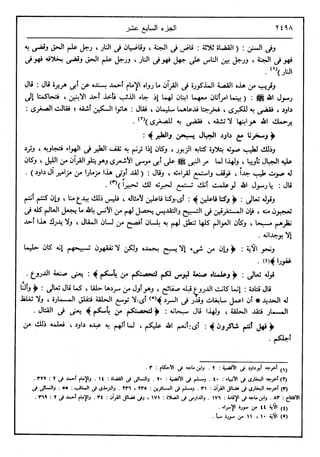 ٢٤٩٨ الجزء السابع عشر
وفى السنن : ( القضاة ثلاثة : قاض فى الجنة ، وقاضيان فى النار ، رجل علم الحق وقضى به
فهو فى الجنة ، ورجل بين الناس على جهل فهو فى النار ، ورجل علم الحق وقضى بخلافه فهو فى
النار )(١) .
وقريب من هذه القصة المذكورة فى القرآن ما رواه الإمام أحمد بسنده عن أبى هريرة قال : قال
رسول الله ﷺ : ( بينما امرأتان معهما ابنان لهما إذ جاء الذئب فأخذ أحد الابنين ، فتحاكمتا إلى
داود ، فقضى به للكبرى ، فخرجتا فدعاهما سليمان ، فقال : هاتوا السكين أشقه ؛ فقالت الصغرى :
يرحمك الله هو ابنها لا تشقه ، فقضى به للصغرى )(٢) .
﴿ وسخرنا مع داود الجبال يسبحن والطير ﴾ :
وذلك لطيب صوته بتلاوة كتابه الزبور ، وكان إذا ترنم به تقف الطير فى الهواء فتجاوبه ، وترد
عليه الجبال تأويبا ، ولهذا لما مر النبى ﷺ على أبى موسى الأشعرى وهو يتلو القرآن من الليل ، وكان
له صوت طيب جداً ، فوقف واستمع لقراءته ، وقال : ( لقد أوتى هذا مزمارا من مزامير آل داود ) .
قال : يا رسول الله لو علمت أنك تستمع لحبرته لك تحبيراً )(٣) .
وقوله تعالى : ﴿ وكنا فاعلين ﴾ : أى : وكنا فاعلين لأمثاله ، فليس ذلك ببدع منا ، وإن كنتم أنتم
تعجبون منه ، فإن المستغرقين فى التسبيح والتقديس يحصل لهم من الأنس بالله ما يجعل العالم كله فى
نظرهم مسبحا ، وكأن العوالم كلها تنطق لهم به بلسان أفصح من لسان المقال ، ولا يدرك هذا أحد
إلا بوجدانه .
ونحو الآية : ﴿ وإن من شىء إلا يسبح بحمده ولكن لا تفقهون تسبيحهم إنه كان حليما
غفورا ﴾(٤) .
قوله تعالى : ﴿ وعلمناه صنعة لبوس لكم لتحصنكم من بأسكم ﴾ : يعنى صنعة الدروع .
قال قتادة : إنما كانت الدروع قبله صفائح ، وهو أول من سردها حلقا ، كما قال تعالى : ﴿ وألنَّا
له الحديد * أن اعمل سابغات وقدر فى السرد ﴾(٥) أى : لا توسع الحلقة فتقلق المسمارة ، ولا تغلظ
المسمار فتقد الحلقة ، ولهذا قال سبحانه : ﴿ لتحصنكم من بأسكم ﴾ يعنى فى القتال .
﴿ فهل أنتم شاكرون ﴾ : أى : أنعم الله عليكم ، لما ألهم به عبده داود ، فعلمه ذلك من
أجلكم .
(١) أخرجه أبو داود فى الأقضية : ٢ . وابن ماجه فى الأحكام : ٣ .
(٢) أخرجه البخارى فى الأنبياء : ٤٠ . ومسلم فى الأقضية : ٢٠ . والنسائى فى القضاة : ١٤ . والإمام أحمد فى ٢ : ٣٢٢ .
(٣) أخرجه البخارى فى فضائل القرآن : ٣١ . ومسلم فى المسافرين : ٢٣٥ ، ٢٣٦ . والترمذى فى المناقب : ٥٥ . والنسائى فى
الافتتاح : ٨٣ . وابن ماجه فى الإقامة : ١٧٦ . والدارمى فى الصلاة : ١٧١ ، وفى فضائل القرآن : ٣٤ . والإمام أحمد فى ٢ : ٣٦٩ .
(٤) الآية ٤٤ من سورة الإسراء .
(٥) الآية ١٠ ، ١١ من سورة سبأ .